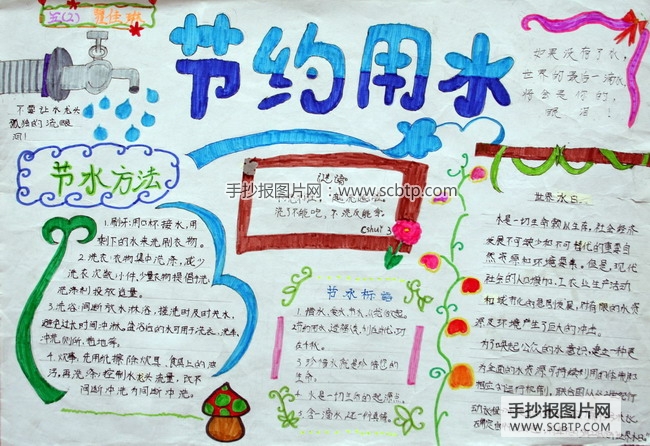 五(2)
节约用水
如果没有了水,
世界的最后一滴水
将会是你的,
眼泪!
不要让水龙头
孤独的流眼
泪!
节水方法
1.刷牙:用口杯接水,用
剩下的水来洗刷衣物。
2.洗衣:衣物集中洗涤,减少
洗衣次数小件,少量衣物提倡手洗,
洗涤剂投放适量。
3.洗浴:间断放水淋浴,搓洗时及时关水,
避免过长时间冲淋。盆浴后的水可用于洗衣、洗车、
冲洗厕所、拖地等。
4.炊事:先用纸擦除炊具、食具上的油
污,再洗涤;控制水龙头流量,改不
间断冲洗为间断冲洗。
谜语
手抄报图片网:www.scbtp.com
洗了不能吃,不洗反能拿。
(shuǐ)
节水标语
3、珍惜水就是珍惜您的
生命。
4、水是一切生命的起源
世界水日
水是一切生命赖以生存,社会经济
发展不可缺少和不可替代的重要自
然资源和环境要素。但是,现代
社会的人口增加,工农业生产活动
和城市化的急剧发展,对有限的水资
源及环境产生了巨大的冲击。
为了唤起公众的水意识,建立一种更
为全面的水资源可持续利用的体制和
相应的运行机制,
手抄报图片网
SCBTP.COM